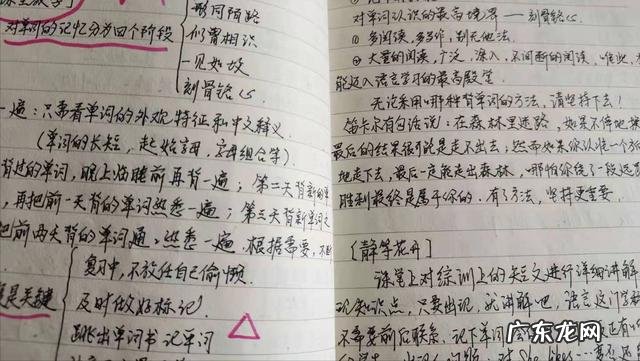 对单词的记忆分为四个阶段
形同陌路
似曾相识
一见如故
刻骨铭心
一遍：只需看单词的外观特征和中文释义
（单词的长短，起始字母，字母组合等）
背过的单词，晚上临睡前再背一遍；第二天背新的单
，再把前一天背的单词熟悉一遍；第三天背新单词又
把前两天背的单词通熟悉一遍．根据需要，不断
复是关键
复习中，不放任自己偷懒
及时做好标记
跳出单词书记单词
对单词认识的最高境界——刻骨铭心
① 多阅读，多写作，别无他法．
② 大量的阅读，广泛，深入，不间断的阅读，唯此，才
能迈入语言学习的最高殿堂
无论采用哪种背单词的方法，请坚持下去！
笛卡尔有句话说：在森林里迷路，如果不停地换
最后的结果很可能是走不出去，然而如果你认准一个方
地走下去，最后一定能走出森林，哪怕你绕了一段远
胜利最终是属于你的．有了方法，坚持更重要．
［静等花开］
课堂上对综训上的短文进行详细讲解
况知识点，只要出现，就讲解吧，语言这门学
不需要前后联系，记下单词
广东龙网